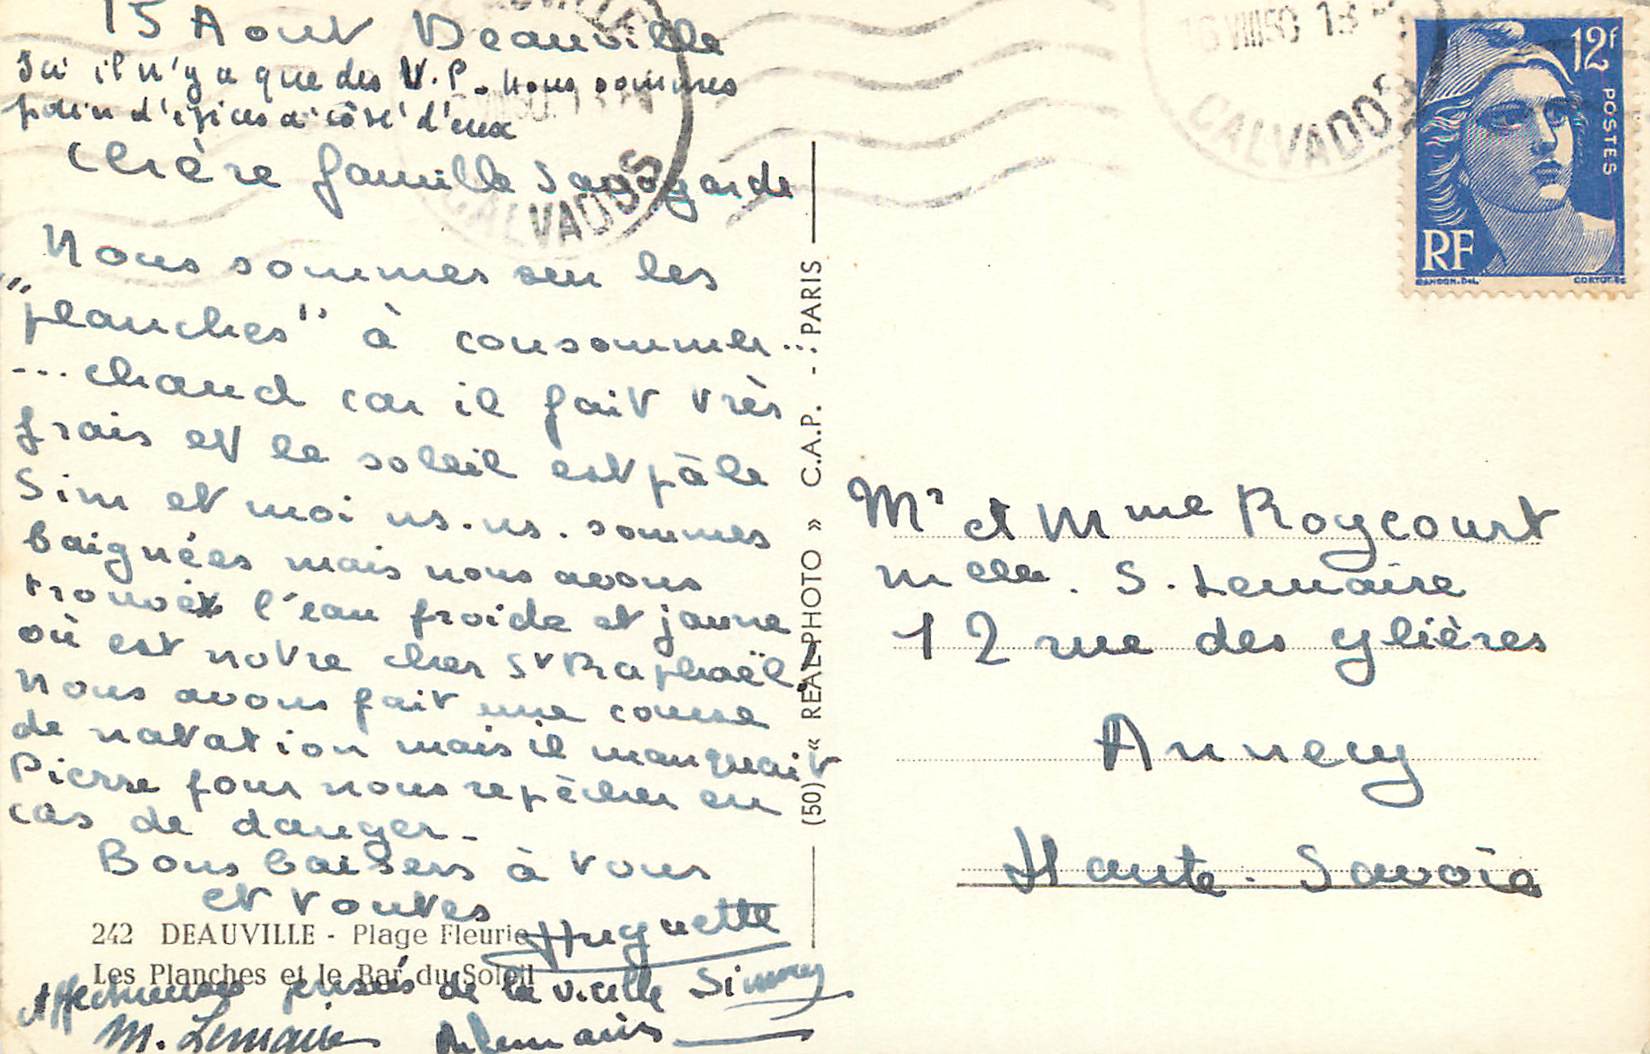 15 Aout Deauville
Ici il n'y a que des V.P. nous sommes
pain d'épices à côté d'eux
Chère famille Savoyarde
Nous sommes sur les
"planches" à consommer...
...chaud car il fait très
frais et le soleil est pâle
Sim et moi ns. ns. sommes
baignées mais nous avons
trouvé l'eau froide et jaune
où est notre cher St Raphaël?
Nous avons fait une course
de natation mais il manquait
Pierre pour nous repêcher en
cas de danger-
Bons baisers à tous
et toutes
Huguette
242 DEAUVILLE - Plage Fleurie
Les Planches et le Bar du Soleil
Affectueuses pensées de la vieille Simmy
M. Lemaire
(50) « REAL-PHOTO » C.A.P. - PARIS
16 VIII 50 13
CALVADOS
CALVADOS
12f
POSTES
RF
GANDON.DEL.
CORTOT.SC
Mr et Mme Roycourt
Melle. S. Lemaire
12 rue des glières
Annecy
Haute-Savoie